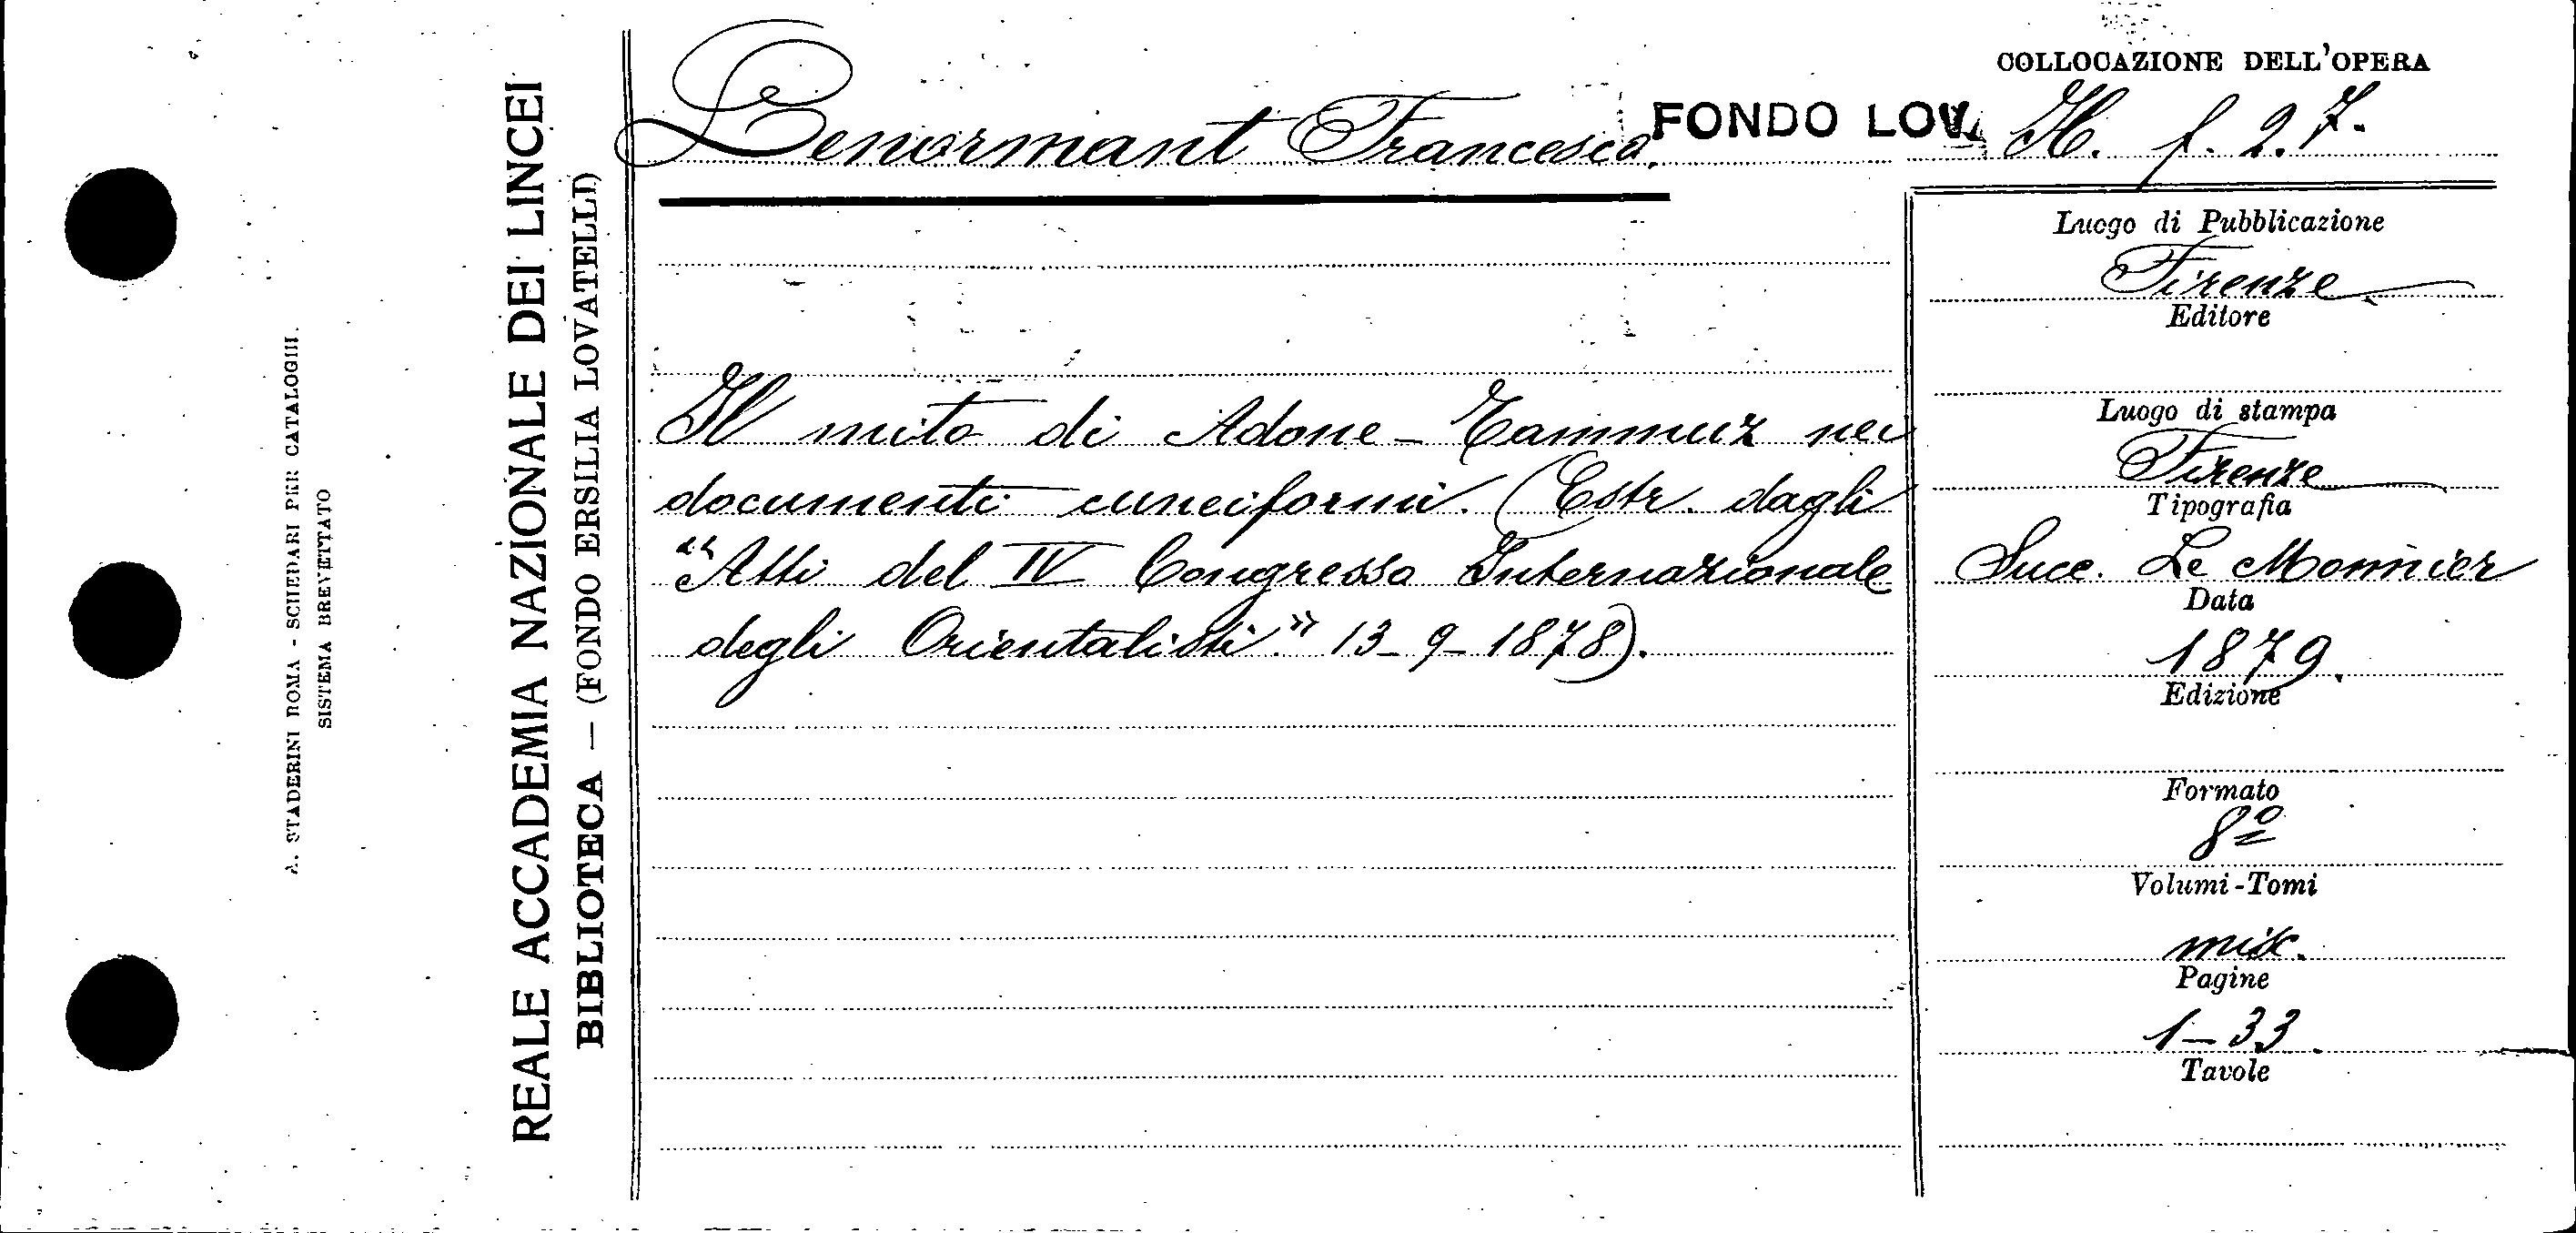 A. STADERINI ROMA - SCHEDARI PER CATALOGHI.
SISTEMA BREVETTATO
REALE ACCADEMIA NAZIONALE DEI LINCEI
BIBLIOTECA — (FONDO ERSILIA LOVATELLI)
Lenormant Francesco.
FONDO LOV.
COLLOCAZIONE DELL'OPERA
H. f. 2.7.
Il mito di Adone-Tammuz nei
documenti cuneiformi. (Estr. dagli
“Atti del IV Congresso Internazionale
degli Orientalisti.” 13-9-1878).
Luogo di Pubblicazione
Firenze
Editore
Luogo di stampa
Firenze
Tipografia
Succ. Le Monnier
Data
1879.
Edizione
Formato
8º
Volumi-Tomi
misc.
Pagine
1-33.
Tavole